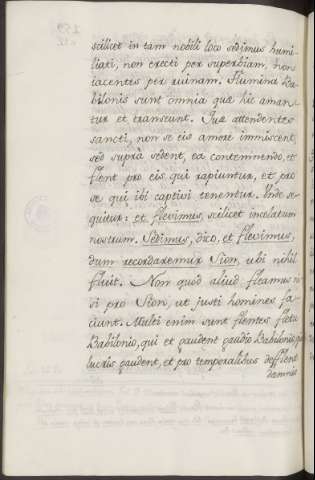 scilicet in tam nobili loco sedimus humi-
liati, non erecti per superbiam, non
iacentes per ruinam. Flumina Ba-
bilonis sunt omnia quæ hic aman-
tur et transeunt. Quæ attendentes
sancti, non se eis amore immiscent,
sed supra sedent, ea contemnendo, et
flent pro eis qui rapiuntur, et pro
se qui ibi captivi tenentur. Unde se-
quitur: et flevimus, scilicet incolatum
nostrum. Sedimus, dico, et flevimus,
dum recordaremur Sion, ubi nihil
fluit. Non quod aliud fleamus ni-
si pro Sion, ut justi homines fa-
ciunt. Multi enim sunt flentes fletu
Babilonio, qui et gaudent gaudio Babilonio
lucris gaudent, et pro temporalibus defflent
damnis